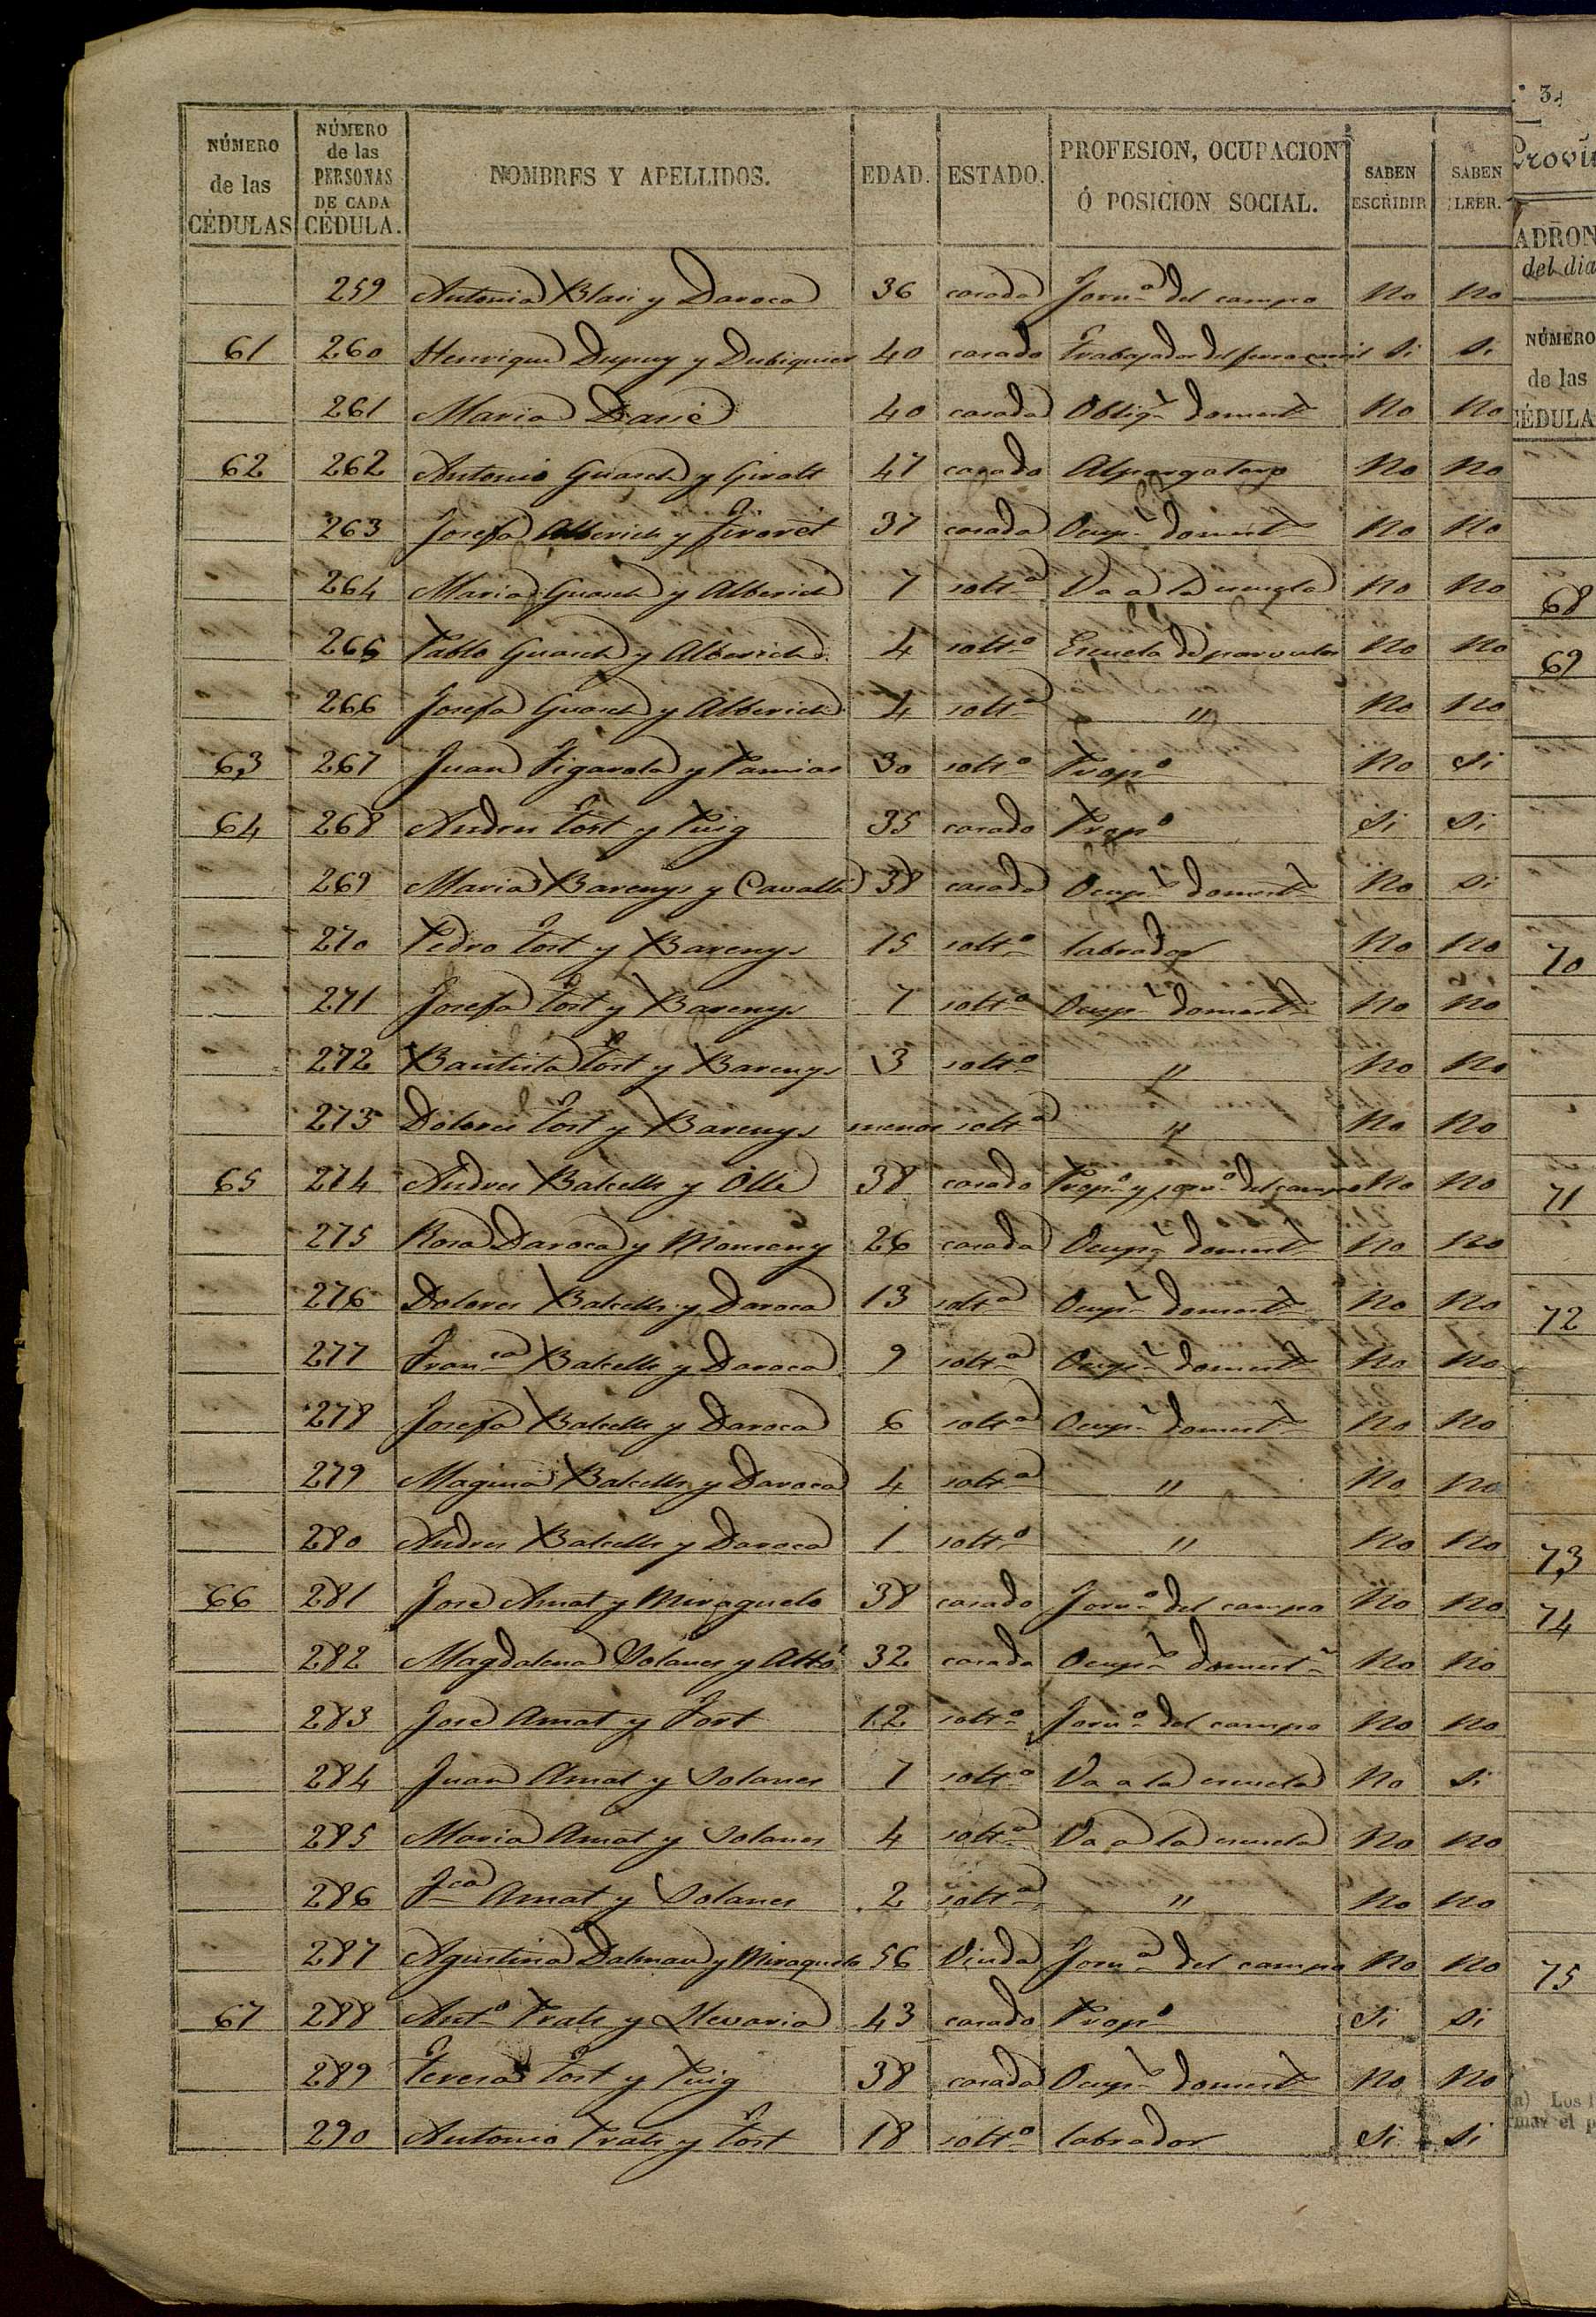 NÚMERO de las CÉDULAS | NÚMERO de las PERSONAS DE CADA CÉDULA. | NOMBRES Y APELLIDOS. | EDAD. | ESTADO. | PROFESION, OCUPACION Ó POSICION SOCIAL. | SABEN ESCRIBIR | SABEN LEER.
259 Antonia Blasi y Daroca 36 casada Jornª del campo No No
61 260 Henrique Dupuy y 40 casado Trabajador del ferro carril Si Si
261 Maria 40 casada Obligs domests No No
62 262 Antonio Guasch y Giralt 47 casado Alpargatero No No
263 Josefa Alberich y 37 casada Ocups domests No No
264 Maria Guasch y Alberich 7 soltª Va a la escuela No No
265 Pablo Guasch y Alberich 4 soltº Escuela de parvulos No No
266 Josefa Guasch y Alberich 4 soltª " No No
63 267 Juan Figarola y Pamias 30 soltº Propº No Si
64 268 Andres Tost y Puig 35 casado Propº Si Si
269 Maria Barenys y Cavallé 38 casada Ocups domests No Si
270 Pedro Tost y Barenys 15 soltº labrador No No
271 Josefa Tost y Barenys 7 soltª Ocups domests No No
272 Bautista Tost y Barenys 3 soltº " No No
273 Dolores Tost y Barenys menos soltª " No No
65 274 Andres Balcells y Ollé 38 casado Propº y jornº del campo No No
275 Rosa Daroca y Monseny 26 casada Ocups domests No No
276 Dolores Balcells y Daroca 13 soltª Ocups domests No No
277 Franca Balcells y Daroca 9 soltª Ocups domests No No
278 Josefa Balcells y Daroca 6 soltª Ocups domests No No
279 Magina Balcells y Daroca 4 soltª " No No
280 Andres Balcells y Daroca 1 soltº " No No
66 281 José Amat y Miraguelo 38 casado Jornº del campo No No
282 Magdalena Solanes y Altés 32 casada Ocups domests No No
283 José Amat y Fort 12 soltº Jornº del campo No No
284 Juan Amat y Solanes 7 soltº Va a la escuela No Si
285 Maria Amat y Solanes 4 soltª Va a la escuela No No
286 Fca Amat y Solanes 2 soltª " No No
287 Agustina Dalmau y Miraguelo 56 Viuda Jornª del campo No No
67 288 Antº Prats y Llevaria 43 casado Propº Si Si
289 Teresa Tost y Puig 38 casada Ocups domests No No
290 Antonio Prats y Tost 18 soltº labrador Si Si
3.
Provin
ADRON
del dia
NÚMERO
de las
CÉDULA
68
69
70
71
72
73
74
75
(a) Los
mar el p